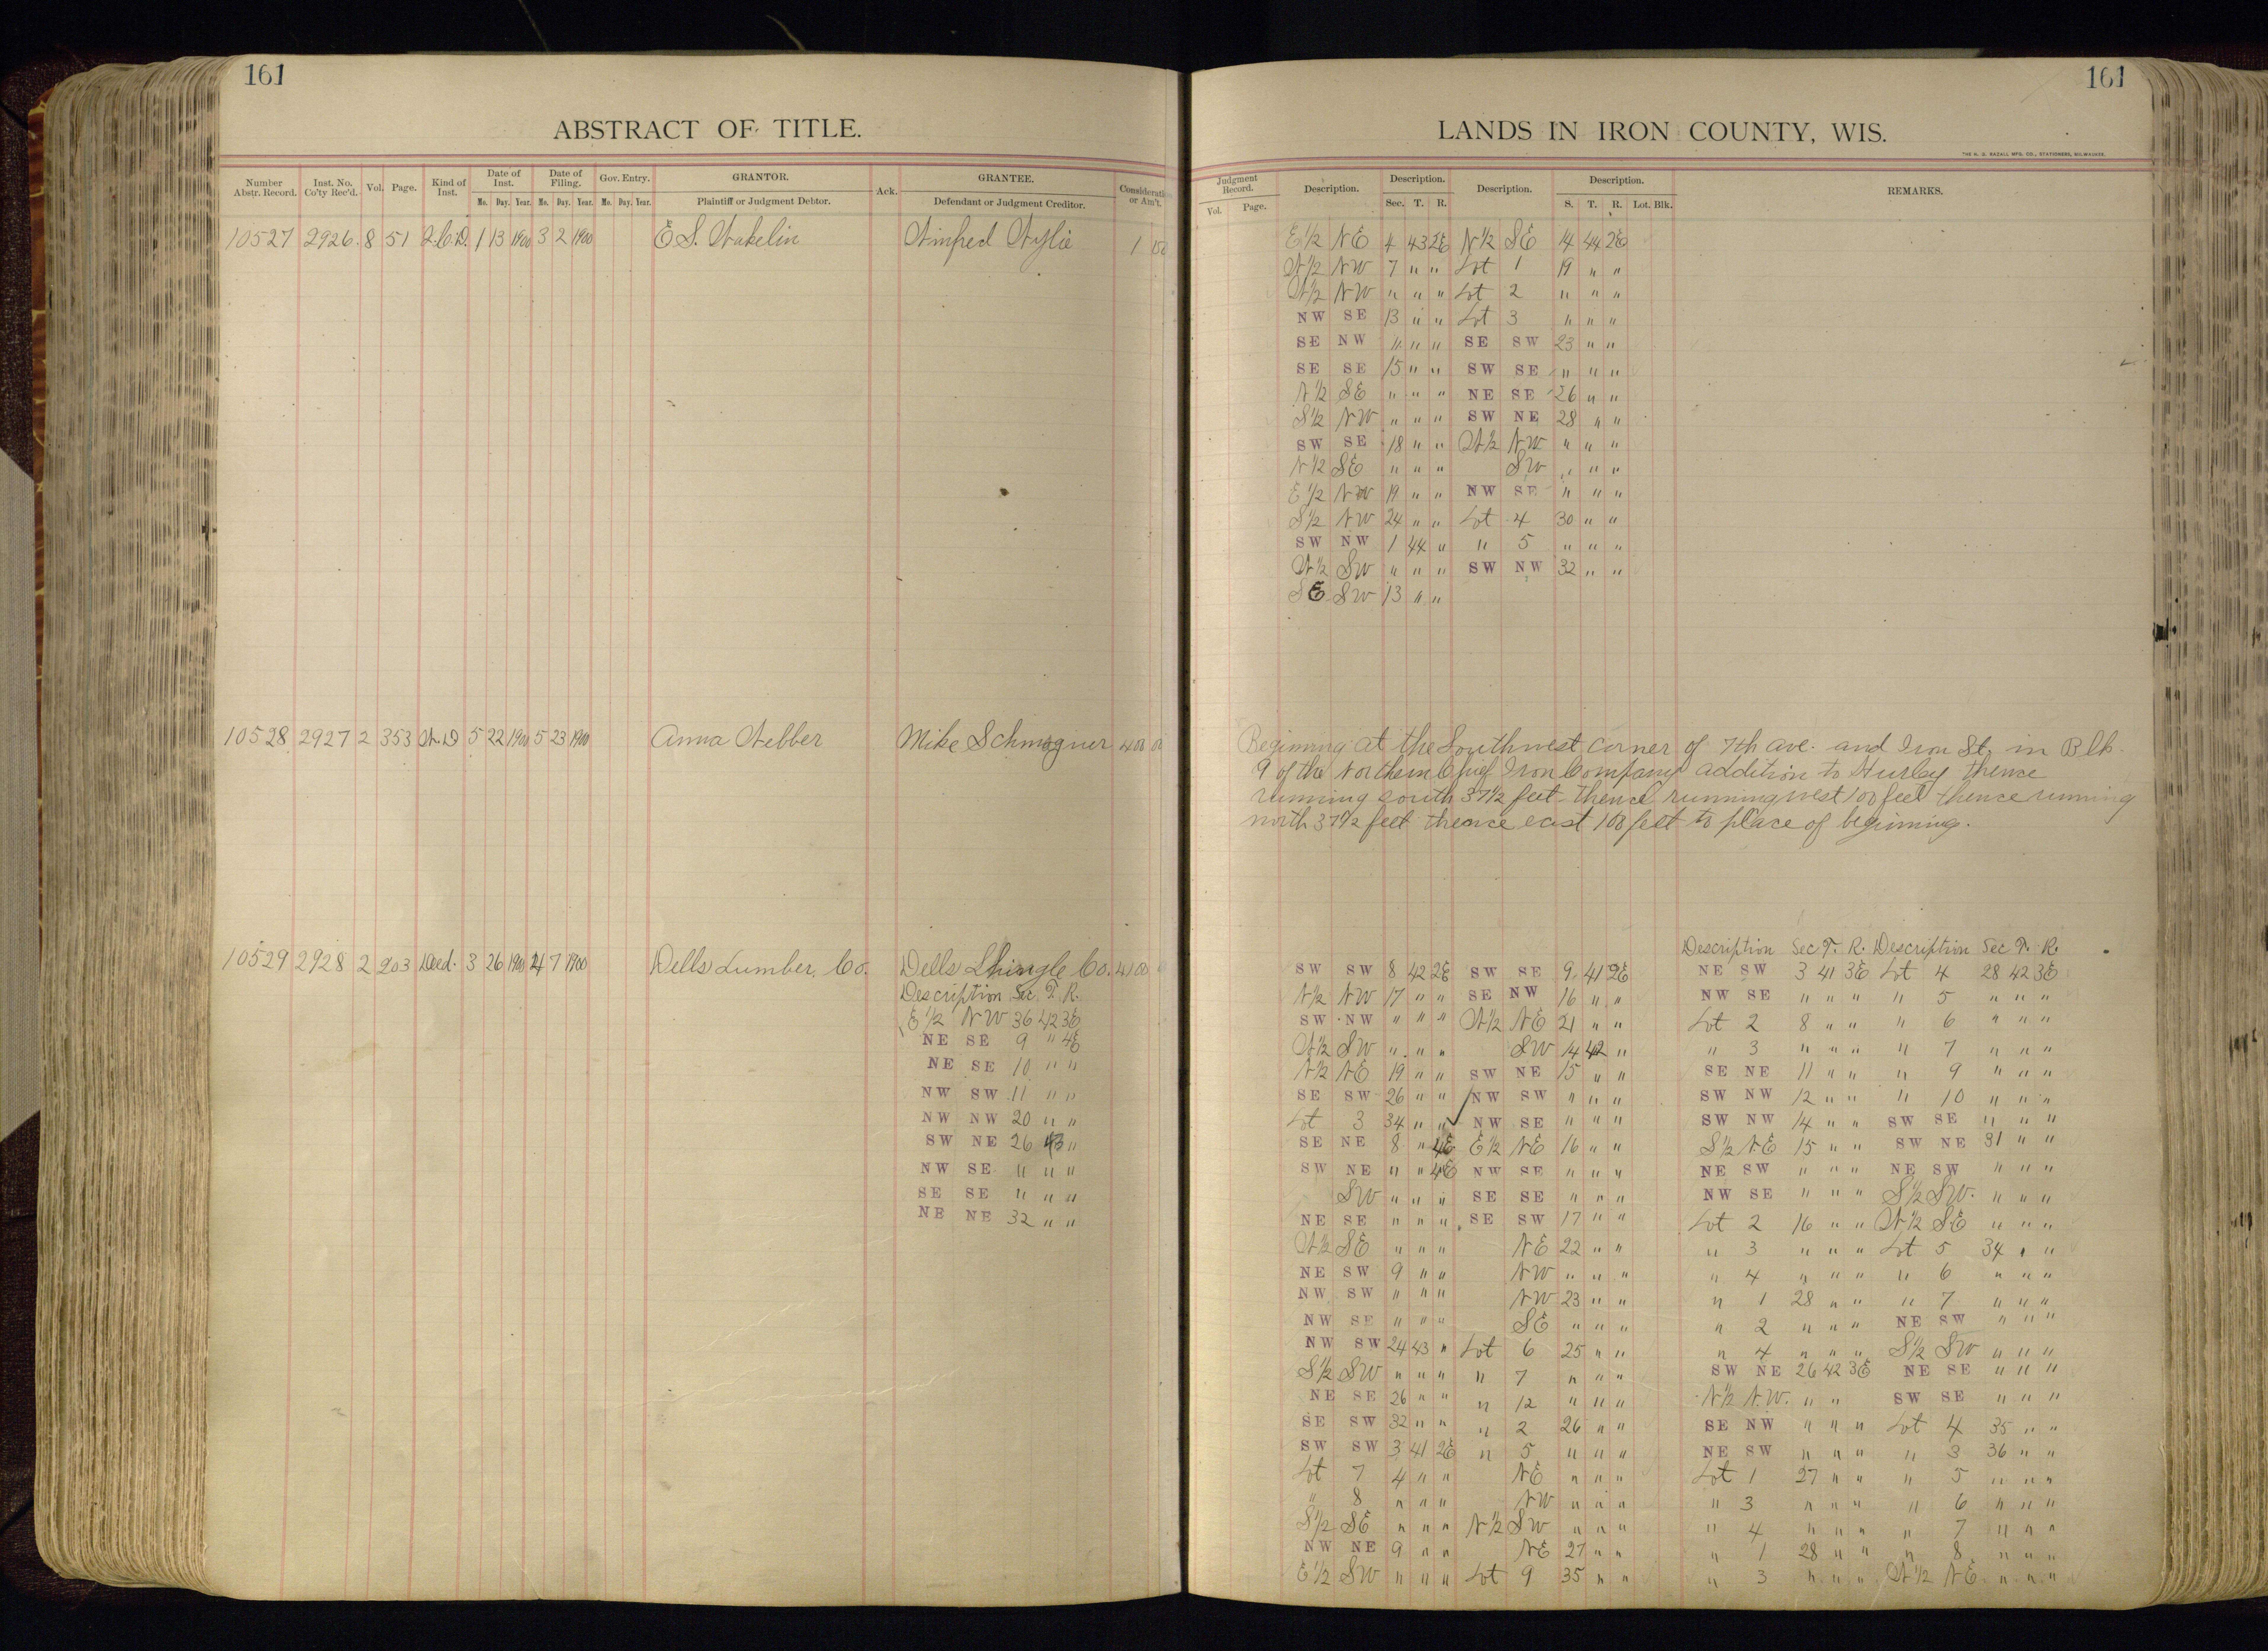 161
ABSTRACT OF TITLE.
Number Abstr. Record. Inst. No. Co'ty Rec'd. Vol. Page. Kind of Inst. Date of Inst. Mo. Day. Year. Date of Filing. Mo. Day. Year. Gov. Entry. Mo. Day. Year. GRANTOR. Plaintiff or Judgment Debtor. Ack. GRANTEE. Defendant or Judgment Creditor. Consideration or Am't.
10527 2926 8 51 Q.C.D. 1 13 1900 3 2 1900 E.S. Wakelin Winfred Wylie 1 00
10528 2927 2 353 W.D 5 22 1900 5 23 1900 Anna Webber Mike 400
10529 2928 2 203 Deed. 3 26 1900 4 7 1900 Dells Lumber Co. Dells Shingle Co. 4100
Description Sec. T. R.
E 1/2 NW 36 42 3E
NE SE 9 " 4E
NE SE 10 " "
NW SW 11 " "
NW NW 20 " "
SW NE 26 43 "
NW SE " " "
SE SE " " "
NE NE 32 " "
161
LANDS IN IRON COUNTY, WIS.
Judgment Record. Vol. Page. Description. Description. Sec. T. R. Description. Description. S. T. R. Lot. Blk. REMARKS.
E 1/2 NE 4 43 2E N 1/2 SE 14 44 2E
W 1/2 NW 7 " " Lot 1 19 " "
W 1/2 NW " " " Lot 2 " " "
NW SE 13 " " Lot 3 " " "
SE NW " " " SE SW 23 " "
SE SE 15 " " SW SE " " "
N 1/2 SE " " " NE SE 26 " "
S 1/2 NW " " " SW NE 28 " "
SW SE 18 " " W 1/2 NW " " "
N 1/2 SE " " " SW " " "
E 1/2 NW 19 " " NW SE " " "
S 1/2 NW 24 " " Lot 4 30 " "
SW NW 1 44 " " 5 " " "
W 1/2 SW " " " SW NW 32 " "
SE SW 13 " "
Beginning at the Southwest corner of 7th ave. and Iron St, in Blk.
9 of the Northern Chief Iron Company addition to Hurley thence
running south 37 1/2 feet thence running west 100 feet thence running
north 37 1/2 feet thence east 100 feet to place of beginning.
Description Sec T. R. Description Sec T. R.
SW SW 8 42 2E SW SE 9 41 2E NE SW 3 41 3E Lot 4 28 42 3E
N 1/2 NW 17 " " SE NW 16 " " NW SE " " " " 5 " " "
SW NW " " " W 1/2 NE 21 " " Lot 2 8 " " " 6 " " "
W 1/2 SW " " " SW 14 42 " " 3 " " " " 7 " " "
N 1/2 NE 19 " " SW NE 15 " " SE NE 11 " " " 9 " " "
SE SW 26 " " NW SW " " " SW NW 12 " " " 10 " " "
Lot 3 34 " " NW SE " " " SW NW 14 " " SW SE " " "
SE NE 8 " 4E E 1/2 NE 16 " " S 1/2 NE 15 " " SW NE 31 " "
SW NE " " 4E NW SE " " " NE SW " " " NE SW " " "
SW " " " SE SE " " " NW SE " " " S 1/2 SW. " " "
NE SE " " " SE SW 17 " " Lot 2 16 " " W 1/2 SE " " "
W 1/2 SE " " " NE 22 " " " 3 " " " Lot 5 34 " "
NE SW 9 " " NW " " " " 4 " " " " 6 " " "
NW SW " " " NW 23 " " " 1 28 " " " 7 " " "
NW SE " " " SE " " " " 2 " " " NE SW " " "
NW SW 24 43 " Lot 6 25 " " " 4 " " " S 1/2 SW " " "
S 1/2 SW " " " " 7 " " " SW NE 26 42 3E NE SE " " "
NE SE 26 " " " 12 " " " N 1/2 N.W. " " SW SE " " "
SE SW 32 " " " 2 26 " " SE NW " " " Lot 4 35 " "
SW SW 3 41 2E " 5 " " " NE SW " " " " 3 36 " "
Lot 7 4 " " NE " " " Lot 1 27 " " " 5 " " "
" 8 " " " NW " " " " 3 " " " " 6 " " "
S 1/2 SE " " " N 1/2 SW " " " " 4 " " " " 7 " " "
NW NE 9 " " NE 27 " " " 1 28 " " " 8 " " "
E 1/2 SW " " " Lot 9 35 " " " 3 " " " W 1/2 NE " " "